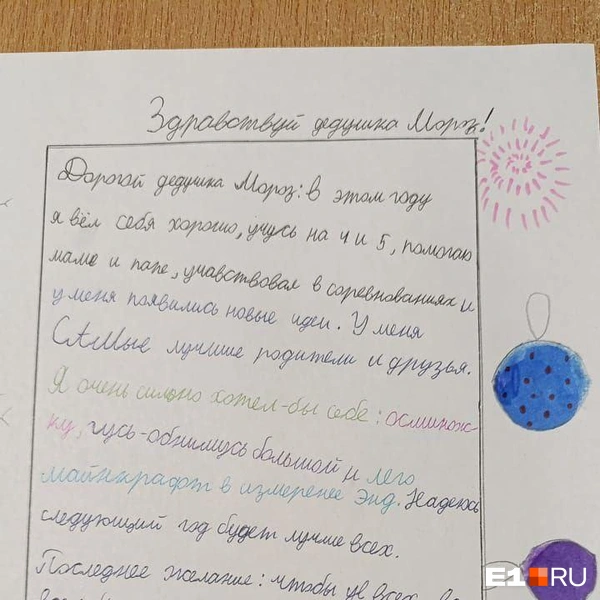 Здравствуй дедушка Мороз!
Дорогой дедушка Мороз: в этом году
я вёл себя хорошо, учусь на 4 и 5, помогаю
маме и папе, учавствовал в соревнованиях и
у меня появились новые идеи. У меня
САМые лучшие родители и друзья.
Я очень сильно хотел-бы себе: осминож-
ку, гусь-обнимусь большой и лего
майнкрафт в измеренее Энд. Надеюсь
следующий год будет лучше всех.
Последнее желание: чтобы у всех
E1.RU